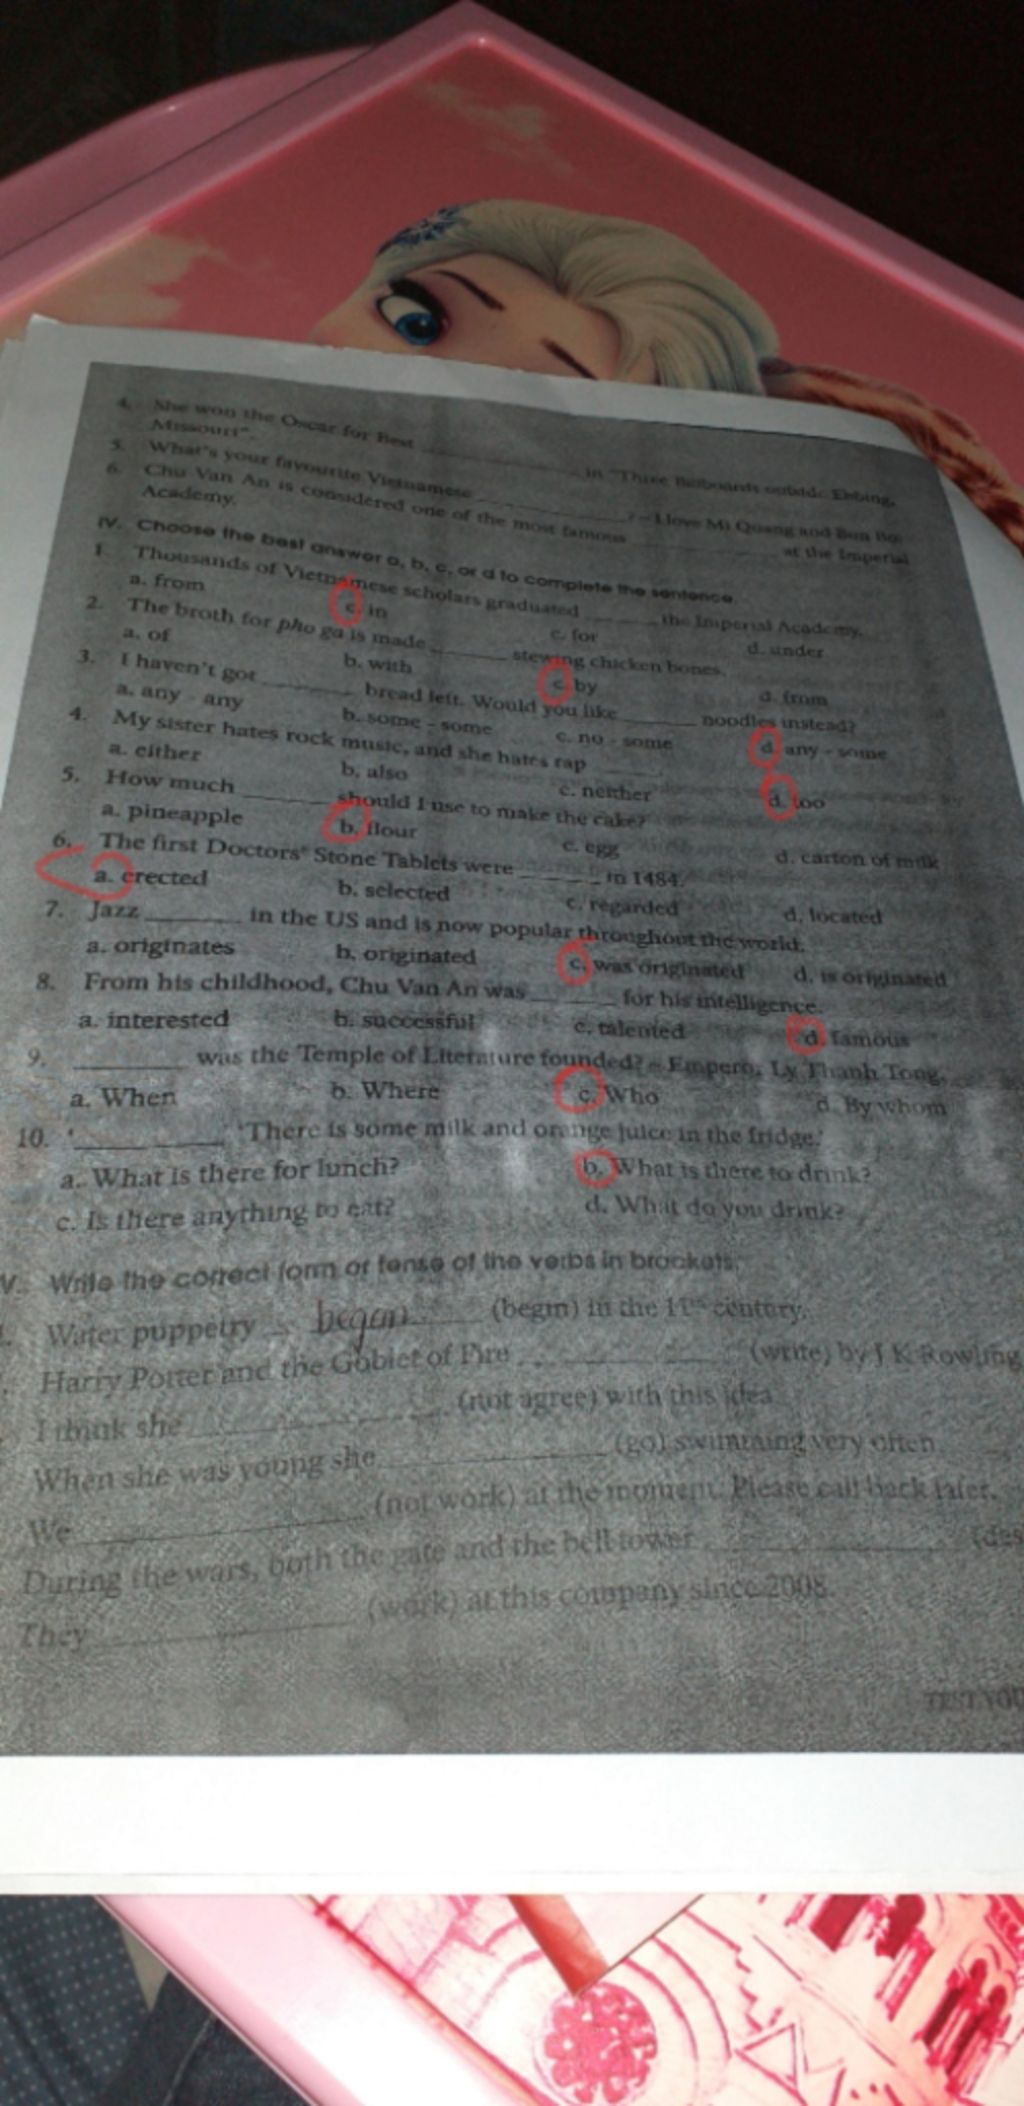 4. She won the Oscar for Best ____________ in "Three Billboards outside Ebbing,
Missouri".
5. What's your favourite Vietnamese ____________? – I love Mi Quang and Bun Bo
6. Chu Van An is considered one of the most famous ____________ at the Imperial
Academy.
IV. Choose the best answer a, b, c, or d to complete the sentence.
1. Thousands of Vietnamese scholars graduated ______ the Imperial Academy.
a. from c. in c. for d. under
2. The broth for pho ga is made ______ stewing chicken bones.
a. of b. with c. by d. from
3. I haven't got ______ bread left. Would you like ______ noodles instead?
a. any - any b. some - some c. no - some d. any - some
4. My sister hates rock music, and she hates rap ______.
a. either b. also c. neither d. too
5. How much ______ should I use to make the cake?
a. pineapple b. flour c. egg d. carton of milk
6. The first Doctors' Stone Tablets were ______ in 1484.
a. erected b. selected c. regarded d. located
7. Jazz ______ in the US and is now popular throughout the world.
a. originates b. originated c. was originated d. is originated
8. From his childhood, Chu Van An was ______ for his intelligence.
a. interested b. successful c. talented d. famous
9. ______ was the Temple of Literature founded? – Emperor Ly Thanh Tong.
a. When b. Where c. Who d. By whom
10. '____________' 'There is some milk and orange juice in the fridge.'
a. What is there for lunch? b. What is there to drink?
c. Is there anything to eat? d. What do you drink?
V. Write the correct form or tense of the verbs in brackets.
Water puppetry began (begin) in the 11th century.
Harry Potter and the Goblet of Fire ____________ (write) by J K Rowling
I think she ____________ (not agree) with this idea
When she was young she ____________ (go) swimming very often
We ____________ (not work) at the moment. Please call back later.
During the wars, both the gate and the bell tower ____________ (des
They ____________ (work) at this company since 2008.
TEST YOU